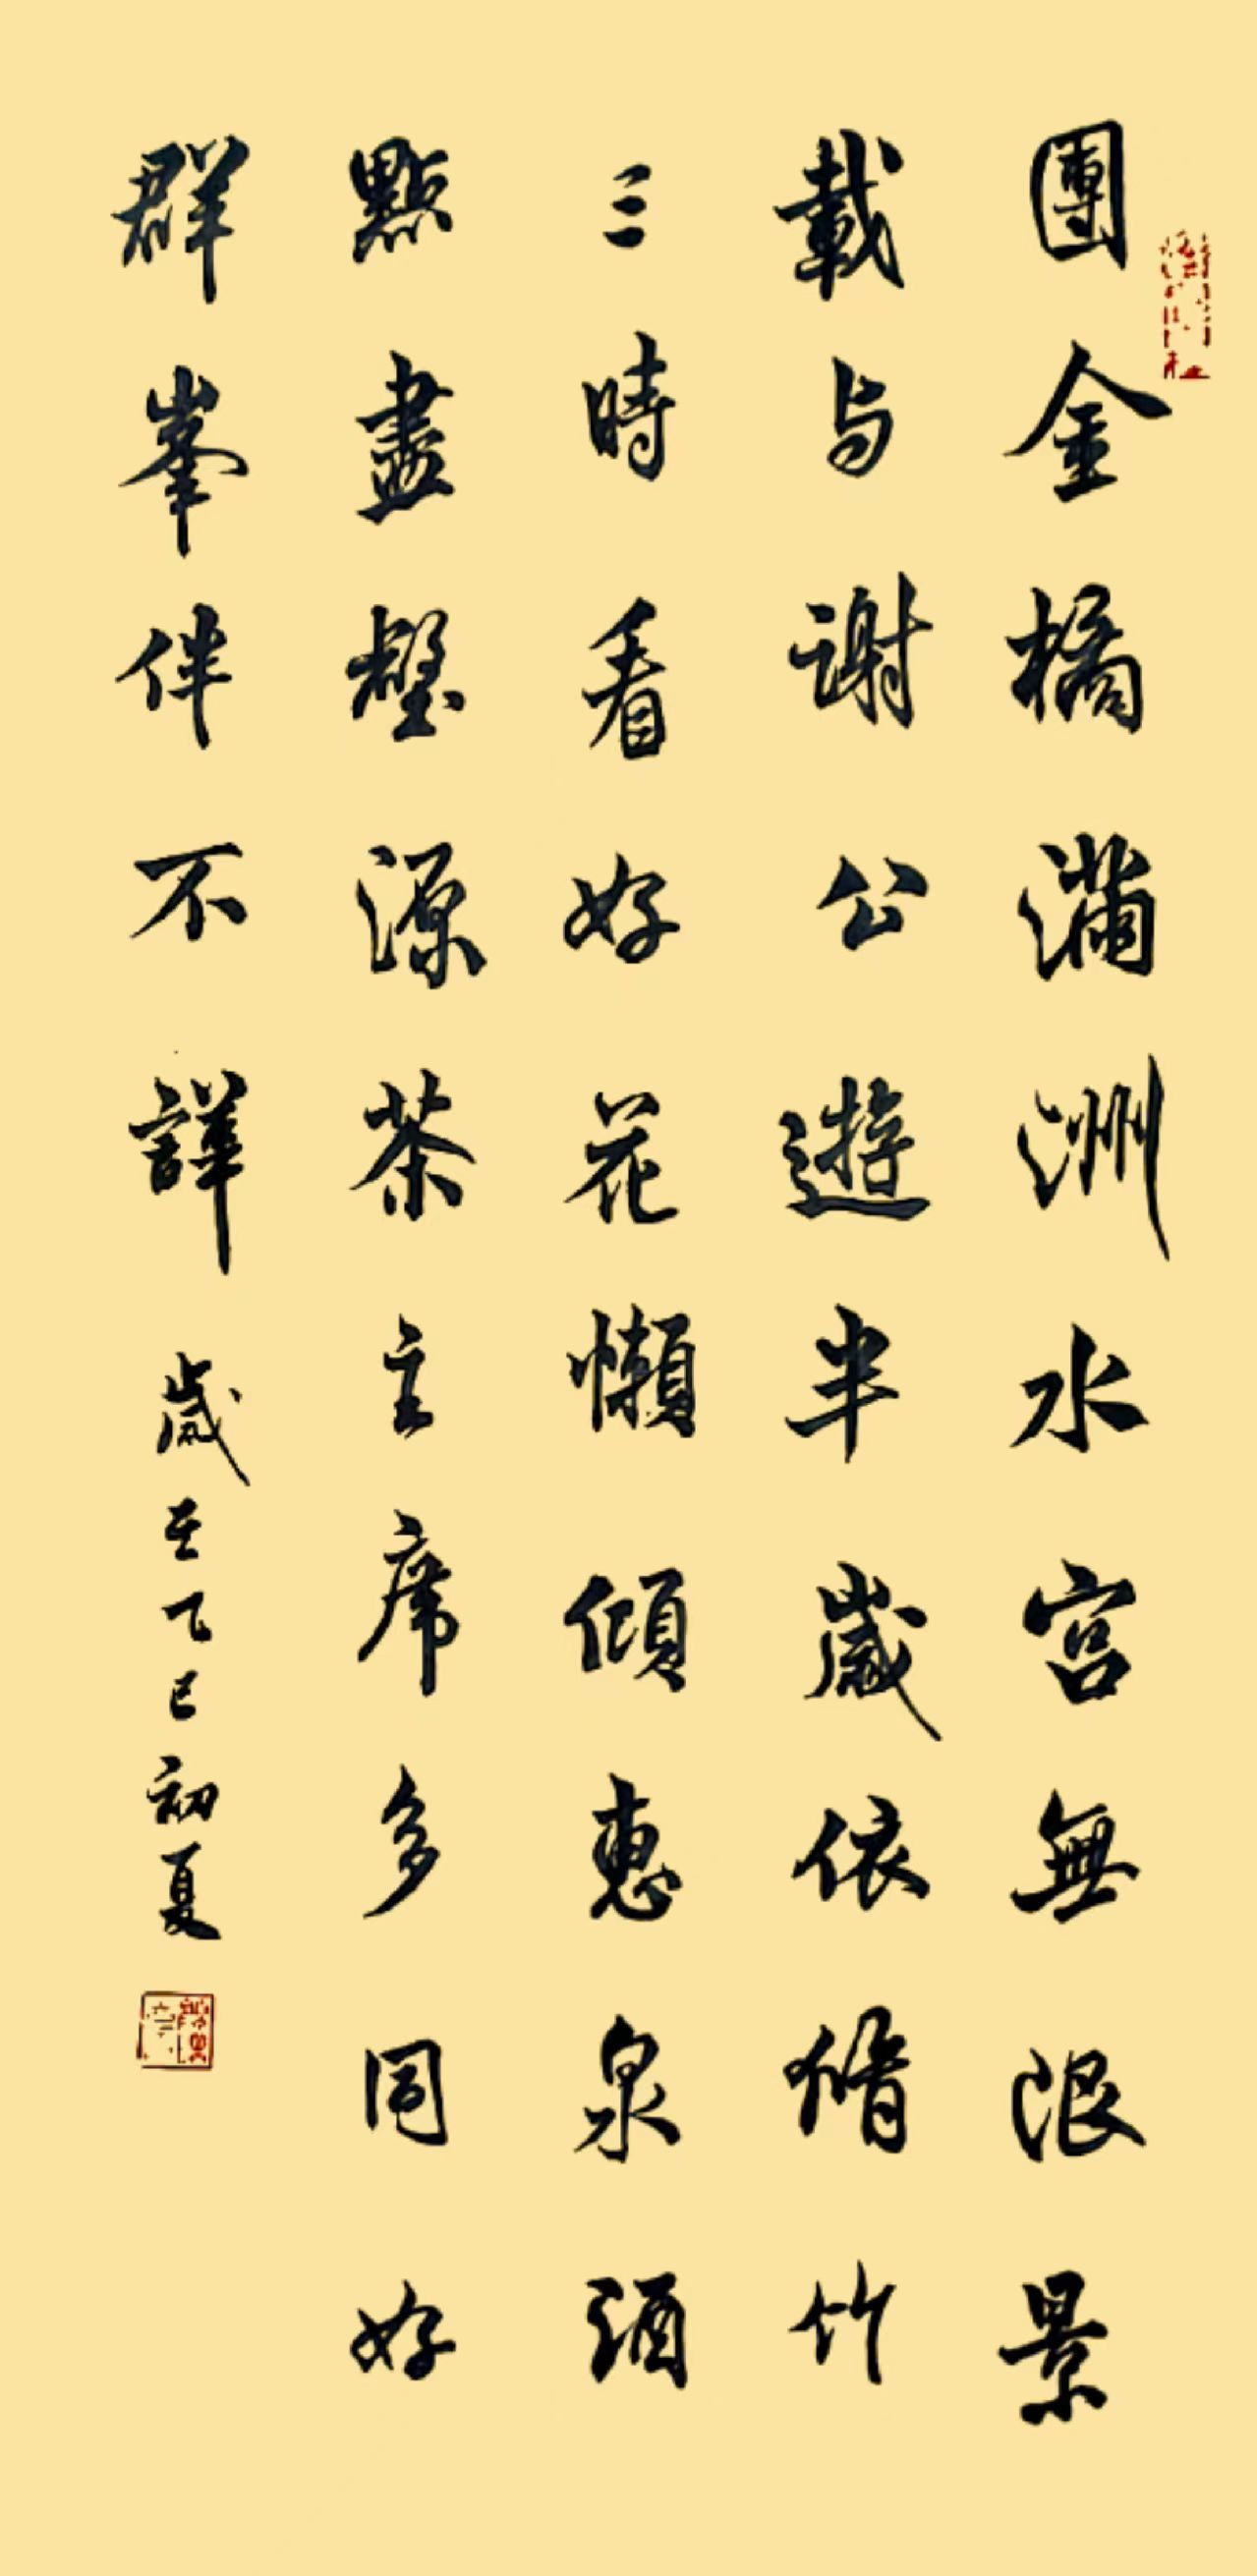 團金橘滿洲水宮無限景
載与謝公遊半歲依脩竹
三時看好花懶傾惠泉酒
點盡壑源茶主席多同好
群峯伴不譁
歲至乙巳初夏